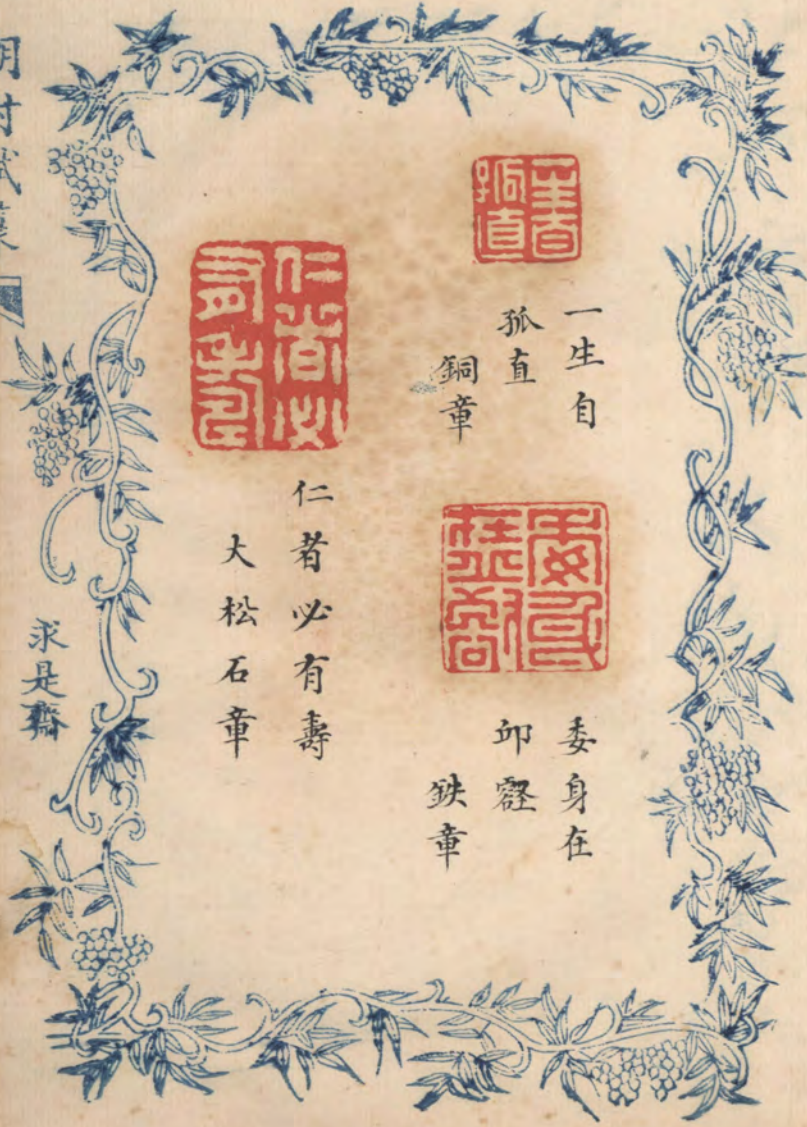 一生自
孤直
一生自
孤直
銅章
委身
在丘壑
委身在
邱壑
鉄章
仁者必
有壽
仁者必有壽
大松石章
求是齋